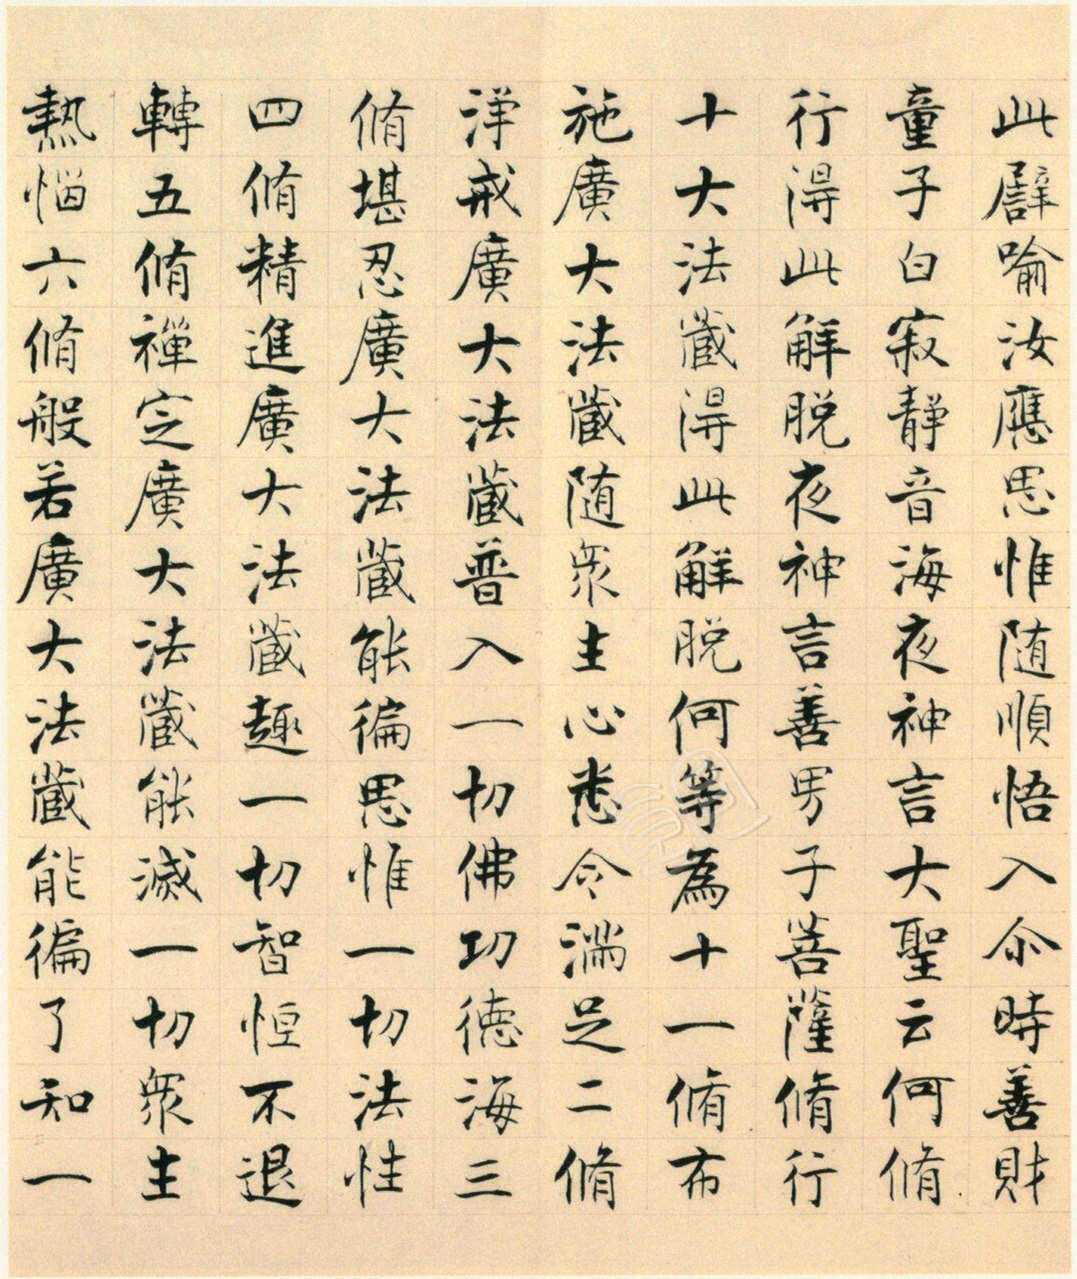 此譬喻汝應思惟随順悟入尒時善財
童子白寂靜音海夜神言大聖云何脩
行得此解脱夜神言善男子菩薩脩行
十大法藏得此解脱何等為十一脩布
施廣大法藏随衆生心悉令滿足二脩
淨戒廣大法藏普入一切佛功德海三
脩堪忍廣大法藏能徧思惟一切法性
四脩精進廣大法藏趣一切智恒不退
轉五脩禪定廣大法藏能滅一切衆生
熱惱六脩般若廣大法藏能徧了知一